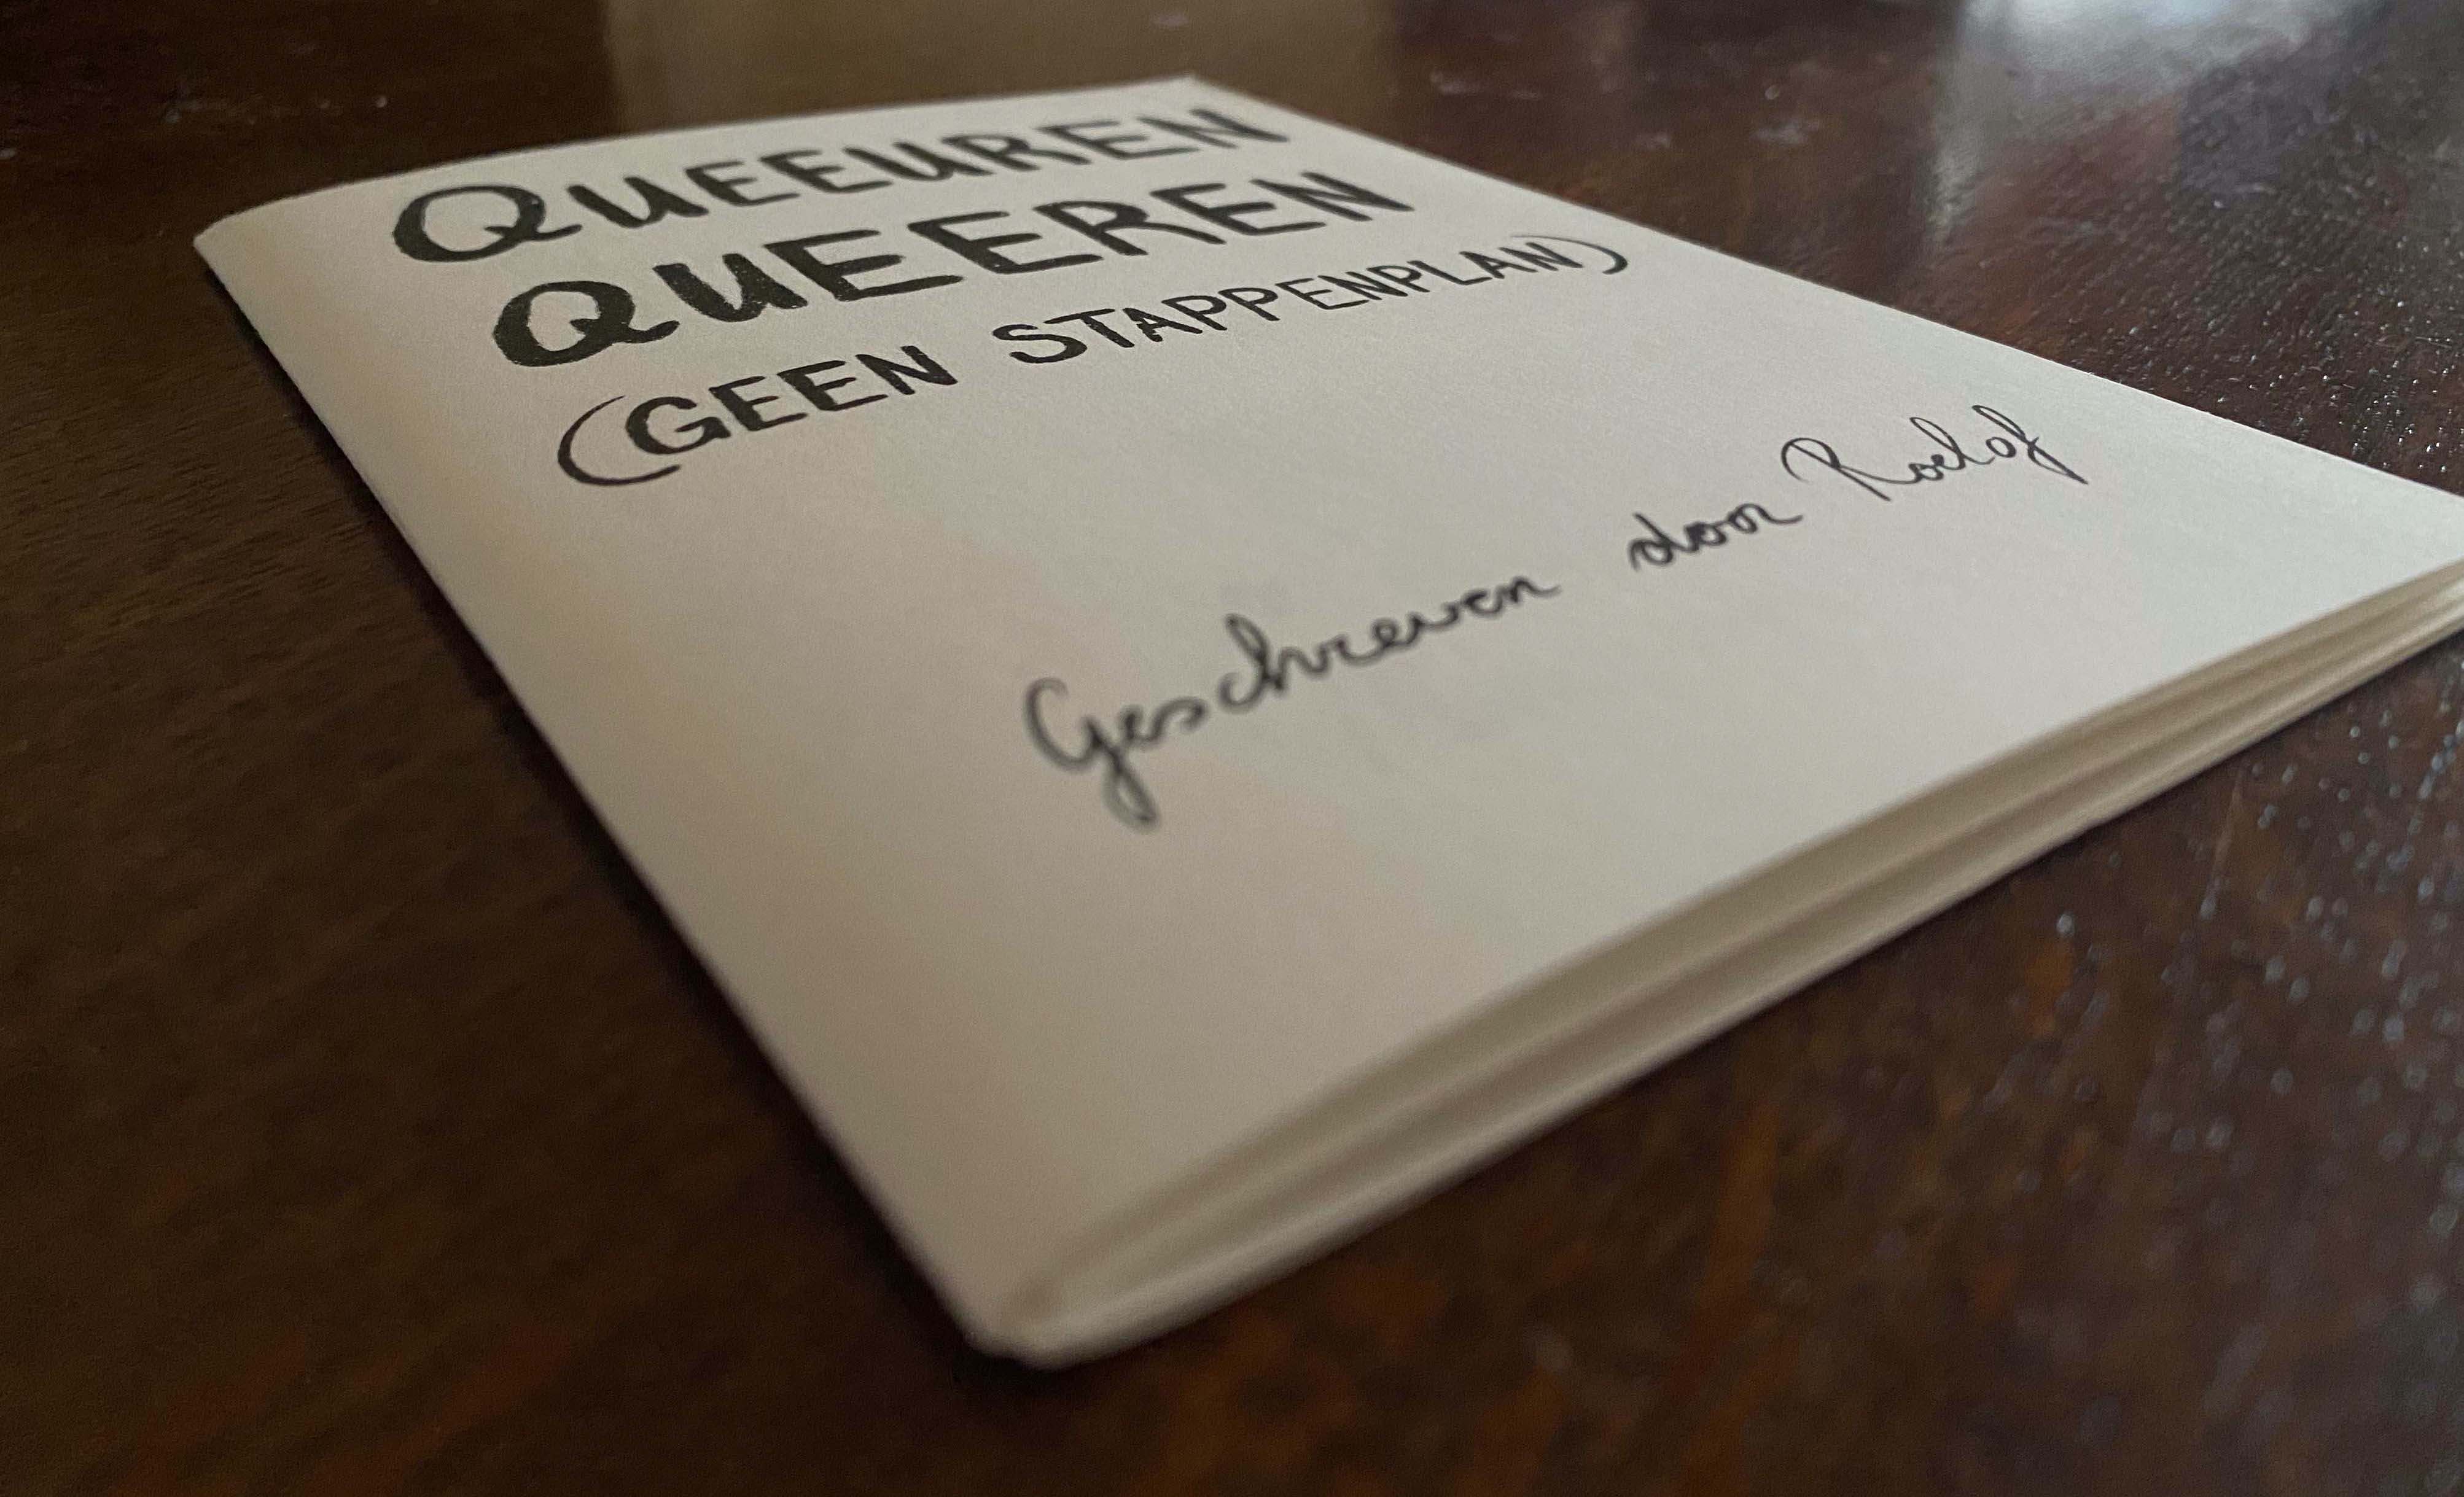 QUEEUREN
QUEEREN
(GEEN STAPPENPLAN)
Geschreven door Roelof